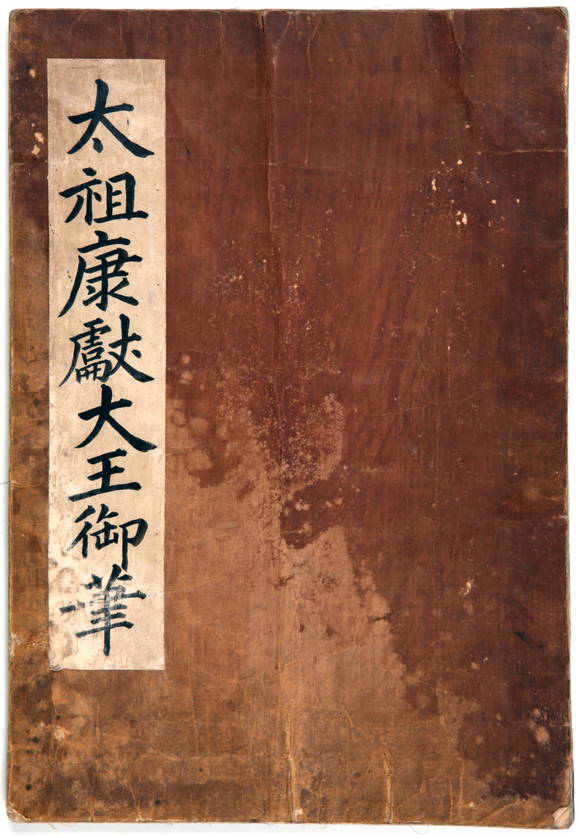 太祖康獻大王御筆